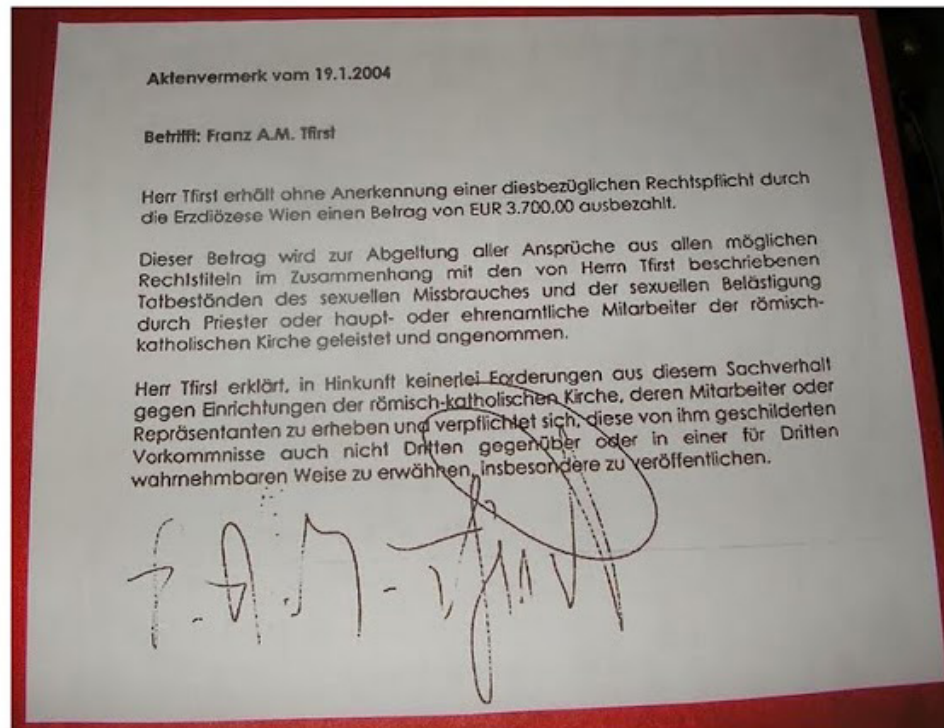 Aktenvermerk vom 19.1.2004
Betrifft: Franz A.M. Tfirst
Herr Tfirst erhält ohne Anerkennung einer diesbezüglichen Rechtspflicht durch
die Erzdiözese Wien einen Betrag von EUR 3.700,00 ausbezahlt.
Dieser Betrag wird zur Abgeltung aller Ansprüche aus allen möglichen
Rechtstiteln im Zusammenhang mit den von Herrn Tfirst beschriebenen
Tatbeständen des sexuellen Missbrauches und der sexuellen Belästigung
durch Priester oder haupt- oder ehrenamtliche Mitarbeiter der römisch-
katholischen Kirche geleistet und angenommen.
Herr Tfirst erklärt, in Hinkunft keinerlei Forderungen aus diesem Sachverhalt
gegen Einrichtungen der römisch-katholischen Kirche, deren Mitarbeiter oder
Repräsentanten zu erheben und verpflichtet sich, diese von ihm geschilderten
Vorkommnisse auch nicht Dritten gegenüber oder in einer für Dritten
wahrnehmbaren Weise zu erwähnen, insbesondere zu veröffentlichen.